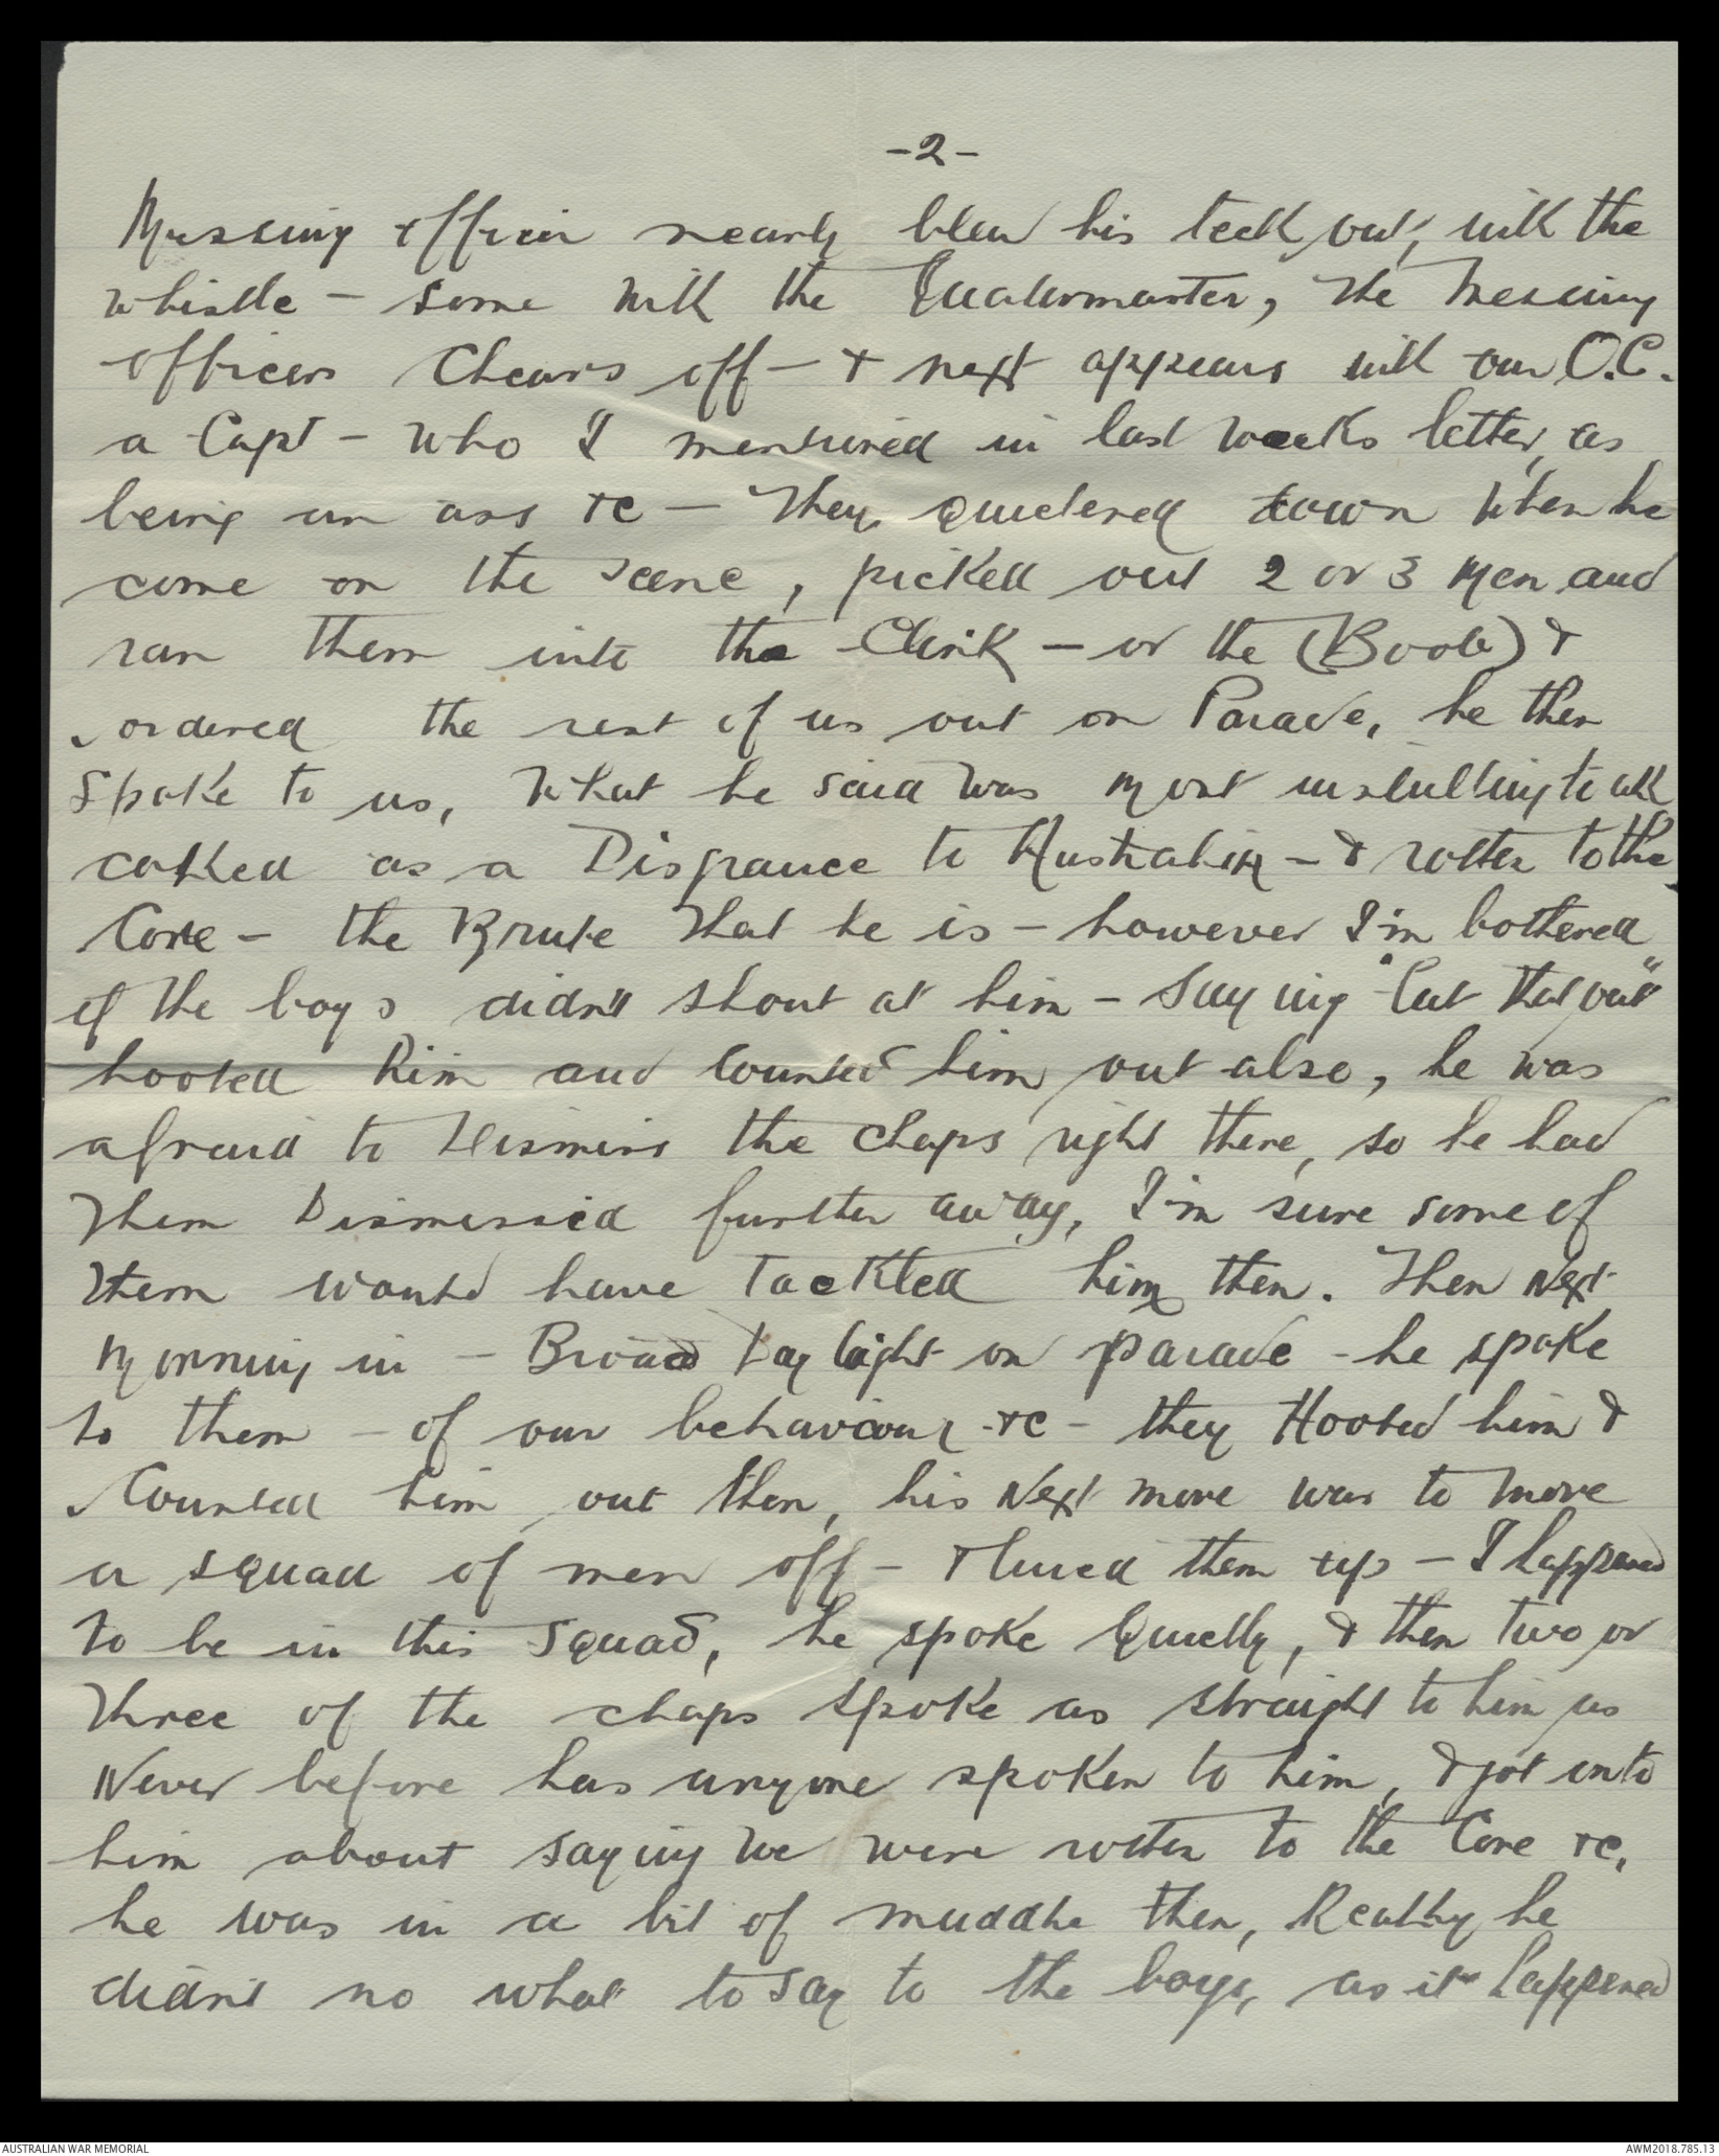 -2-
Messing officer nearly blew his teeth out, with the
whistle – same with the Quatermaster, The Messing
officer Clears off – & next appears with our O.C.
a Capt – who I mentioned in last weeks letter, as
being an ass &c – They quietened down when he
come on the scene, picked out 2 or 3 Men and
ran them into the Clink – or the (Boob) &
ordered the rest of us out on Parade, he then
spoke to us, what he said was most insulting to all
called as a Disgrance to Australia – & rotten to the
Core – the Brute that he is – however I'm bothered
if the boys didn't shout at him – saying "Cut that out"
hooted him and Counted him out also, he was
afraid to Dismiss the chaps right there, so he had
them Dismissed further away, I'm sure some of
them would have Tackled him then. Then Next
Morning in – Broad Daylight on parade – he spoke
to them – of our behaviour &c – they Hooted him &
Counted him out then, his Next move was to move
a squad of men off – & lined them up – I happened
to be in this squad, he spoke Quietly, & then two or
three of the chaps spoke as straight to him as
Never before has anyone spoken to him, & got onto
him about saying we were rotten to the Core &c,
he was in a bit of muddle then, Really he
didn't no what to say to the boys, as it happened
AUSTRALIAN WAR MEMORIAL
AWM2018.785.13